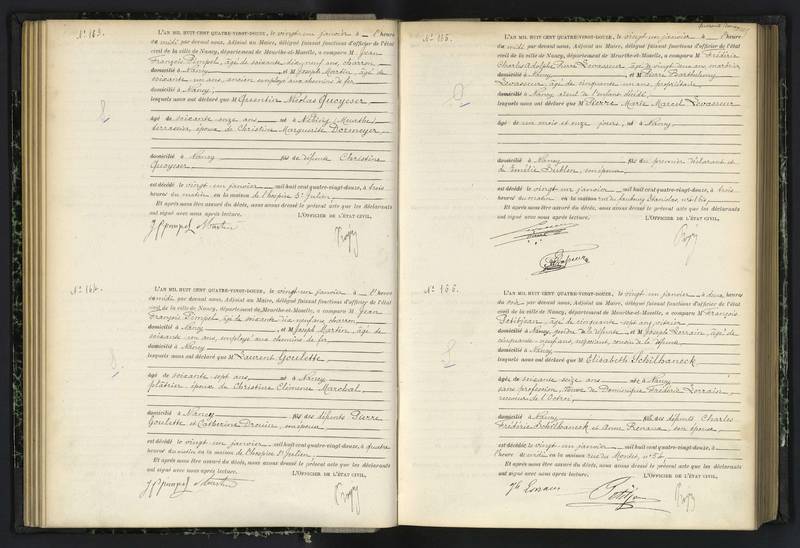 N° 163.
L'AN MIL HUIT CENT QUATRE-VINGT-DOUZE, le vingt-un janvier à l'heure
du midi par devant nous, Adjoint au Maire, délégué faisant fonctions d'officier de l'état
civil de la ville de Nancy, département de Meurthe-et-Moselle, a comparu M Jean
François Pimpel, âgé de soixante dix neuf ans, charron,
domicilié à Nancy, et M Joseph Martin, âgé de
soixante un ans, ancien employé aux chemins de fer
domicilié à Nancy;
lesquels nous ont déclaré que M Quentin Nicolas Quoyeser
âgé de soixante onze ans né à (Meurthe)
terrassier, époux de Christine Marguerite Dormeyer,
domicilié à Nancy fils de défunte Christine
Quoyeser
est décédé le vingt un janvier mil huit cent quatre-vingt-douze, à trois
heures du matin en la maison de l'hospice St Julien
Et après nous être assuré du décès, nous avons dressé le présent acte que les déclarants
ont signé avec nous après lecture. L'OFFICIER DE L'ÉTAT CIVIL,
Martin
N° 164.
L'AN MIL HUIT CENT QUATRE-VINGT-DOUZE, le vingt-un janvier à l'heure
du midi, par devant nous, Adjoint au Maire, délégué faisant fonctions d'officier de l'état
civil de la ville de Nancy, département de Meurthe-et-Moselle, a comparu M Jean
François Pimpel, âgé de soixante dix neuf ans, charron,
domicilié à Nancy, et M Joseph Martin, âgé de
soixante un ans, employé aux chemins de fer
domicilié à Nancy
lesquels nous ont déclaré que M Laurent Goulette,
âgé de soixante sept ans né à Nancy
plâtrier, époux de Christine Clémence Marchal,
domicilié à Nancy fils des défunts Pierre
Goulette et Catherine Drouin,
est décédé le vingt un janvier, mil huit cent quatre-vingt-douze, à quatre
heures du matin en la maison de l'hospice St Julien
Et après nous être assuré du décès, nous avons dressé le présent acte que les déclarants
ont signé avec nous après lecture. L'OFFICIER DE L'ÉTAT CIVIL,
Martin
N° 165.
L'AN MIL HUIT CENT QUATRE-VINGT-DOUZE, le vingt-un janvier à l'heure
du midi par devant nous, Adjoint au Maire, délégué faisant fonctions d'officier de l'état
civil de la ville de Nancy, département de Meurthe-et-Moselle, a comparu M Frédéric
Charles Adolphe Pierre Levasseur, âgé de vingt deux ans,
domicilié à Nancy, et M Pierre Barthélemy
Levasseur, âgé de cinquante un ans, propriétaire
domicilié à Nancy aïeul de l'enfant décédé;
lesquels nous ont déclaré que M Pierre Marie Marcel Levasseur
âgé de un mois et onze jours, né à Nancy
domicilié à Nancy fils du premier déclarant et
de Emélie
est décédé le vingt un janvier mil huit cent quatre-vingt-douze, à trois
heures du matin en la maison rue du faubourg Stanislas,
Et après nous être assuré du décès, nous avons dressé le présent acte que les déclarants
ont signé avec nous après lecture. L'OFFICIER DE L'ÉTAT CIVIL,
N° 166.
L'AN MIL HUIT CENT QUATRE-VINGT-DOUZE, le vingt-un janvier à deux heures
du soir, par devant nous, Adjoint au Maire, délégué faisant fonctions d'officier de l'état
civil de la ville de Nancy, département de Meurthe-et-Moselle, a comparu M François
Petitjean, âgé de cinquante sept ans,
domicilié à Nancy, gendre de la défunte et M Joseph Lorrain, âgé de
cinquante-neuf ans, négociant, cousin de la défunte
domicilié à Nancy
lesquels nous ont déclaré que M Elisabeth Schilbaneck
âgée de soixante seize ans née à Nancy
sans profession, veuve de Dominique Frédéric Lorrain,
receveur de l'Octroi,
domicilié à Nancy fille des défunts Charles
Frédéric Schilbaneck et Anne Renaux, son épouse
est décédée le vingt un janvier mil huit cent quatre-vingt-douze, à
l'heure du midi, en la maison rue du Montet, n° 54,
Et après nous être assuré du décès, nous avons dressé le présent acte que les déclarants
ont signé avec nous après lecture. L'OFFICIER DE L'ÉTAT CIVIL,